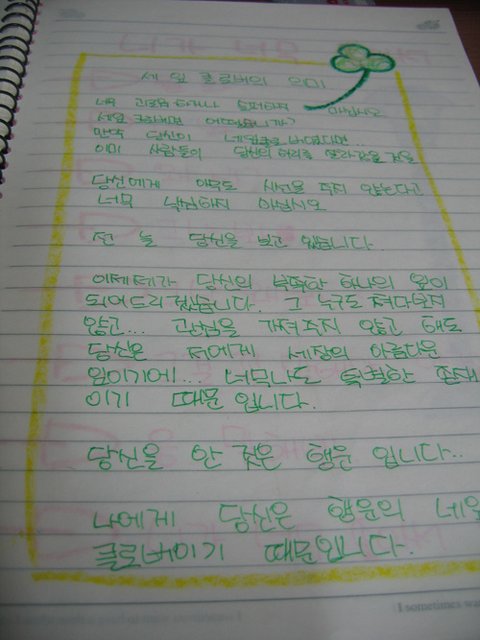 세 잎 클로버의 의미
너무 괴로워 하거나 슬퍼하지 마십시오
세잎 클로버면 어떻습니까?
만약 당신이 네잎클로버였다면...
이미 사람들이 당신의 허리를 잘라갔을 것을
당신에게 아무도 시선을 주지 않는다고
너무 낙심하지 마십시오
전 늘 당신을 보고 있습니다..
이제 제가 당신의 부족한 하나의 잎이
되어드리겠습니다. 그 누구도 쳐다보지
않고... 관심을 가져주지 않고 해도
당신은 저에게 세장의 아름다운
잎이기에... 너무나도 특별한 존재
이기 때문입니다.
당신을 안 것은 행운 입니다..
나에게 당신은 행운의 네잎
클로버이기 때문입니다.
I sometimes wa